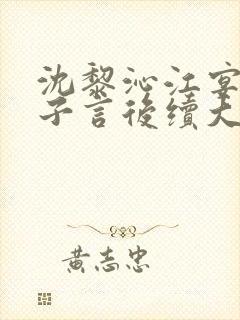 沈黎沁江宴
子言後續大
黃志忠